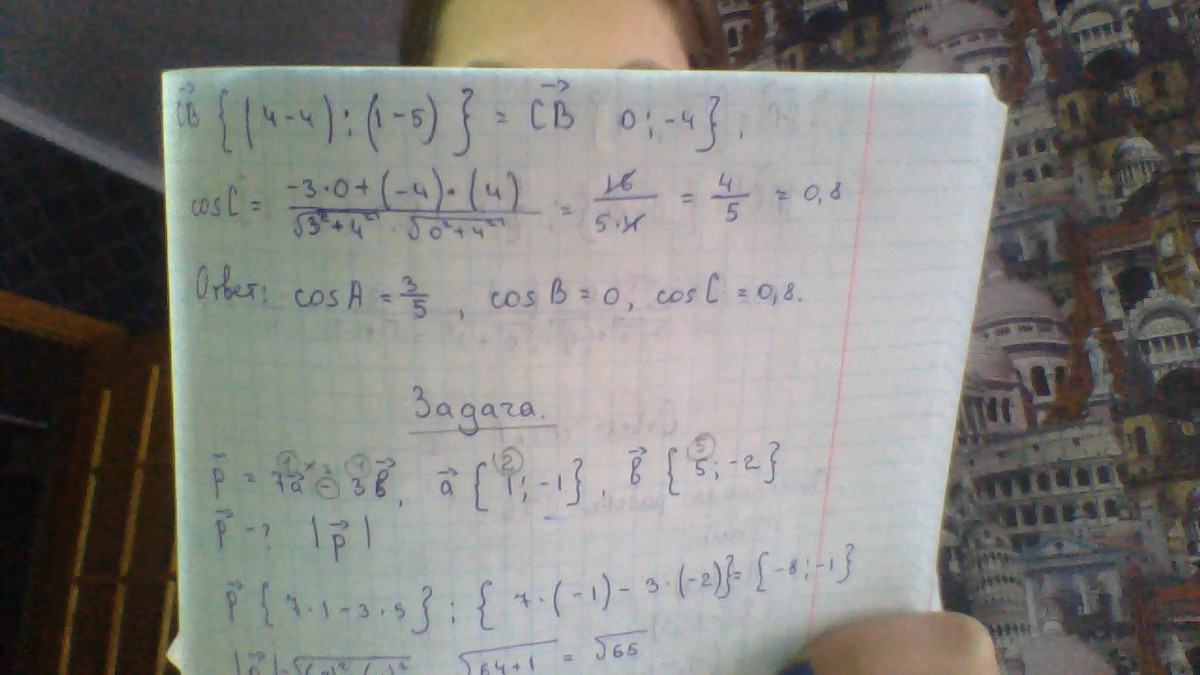 CB {(4-4); (1-5)} = CB 0; -4},
cosC = (-3·0+(-4)·(4))/(√3²+4² · √0²+4²) = 16/(5·4) = 4/5 = 0,8
Ответ: cosA = 3/5, cosB = 0, cosC = 0,8.
Задача.
p = 7a - 3b, a {1; -1}, b {5; -2}
p - ? |p|
p {7·1-3·5}; {7·(-1)-3·(-2)} = {-8; -1}
√64+1 = √65